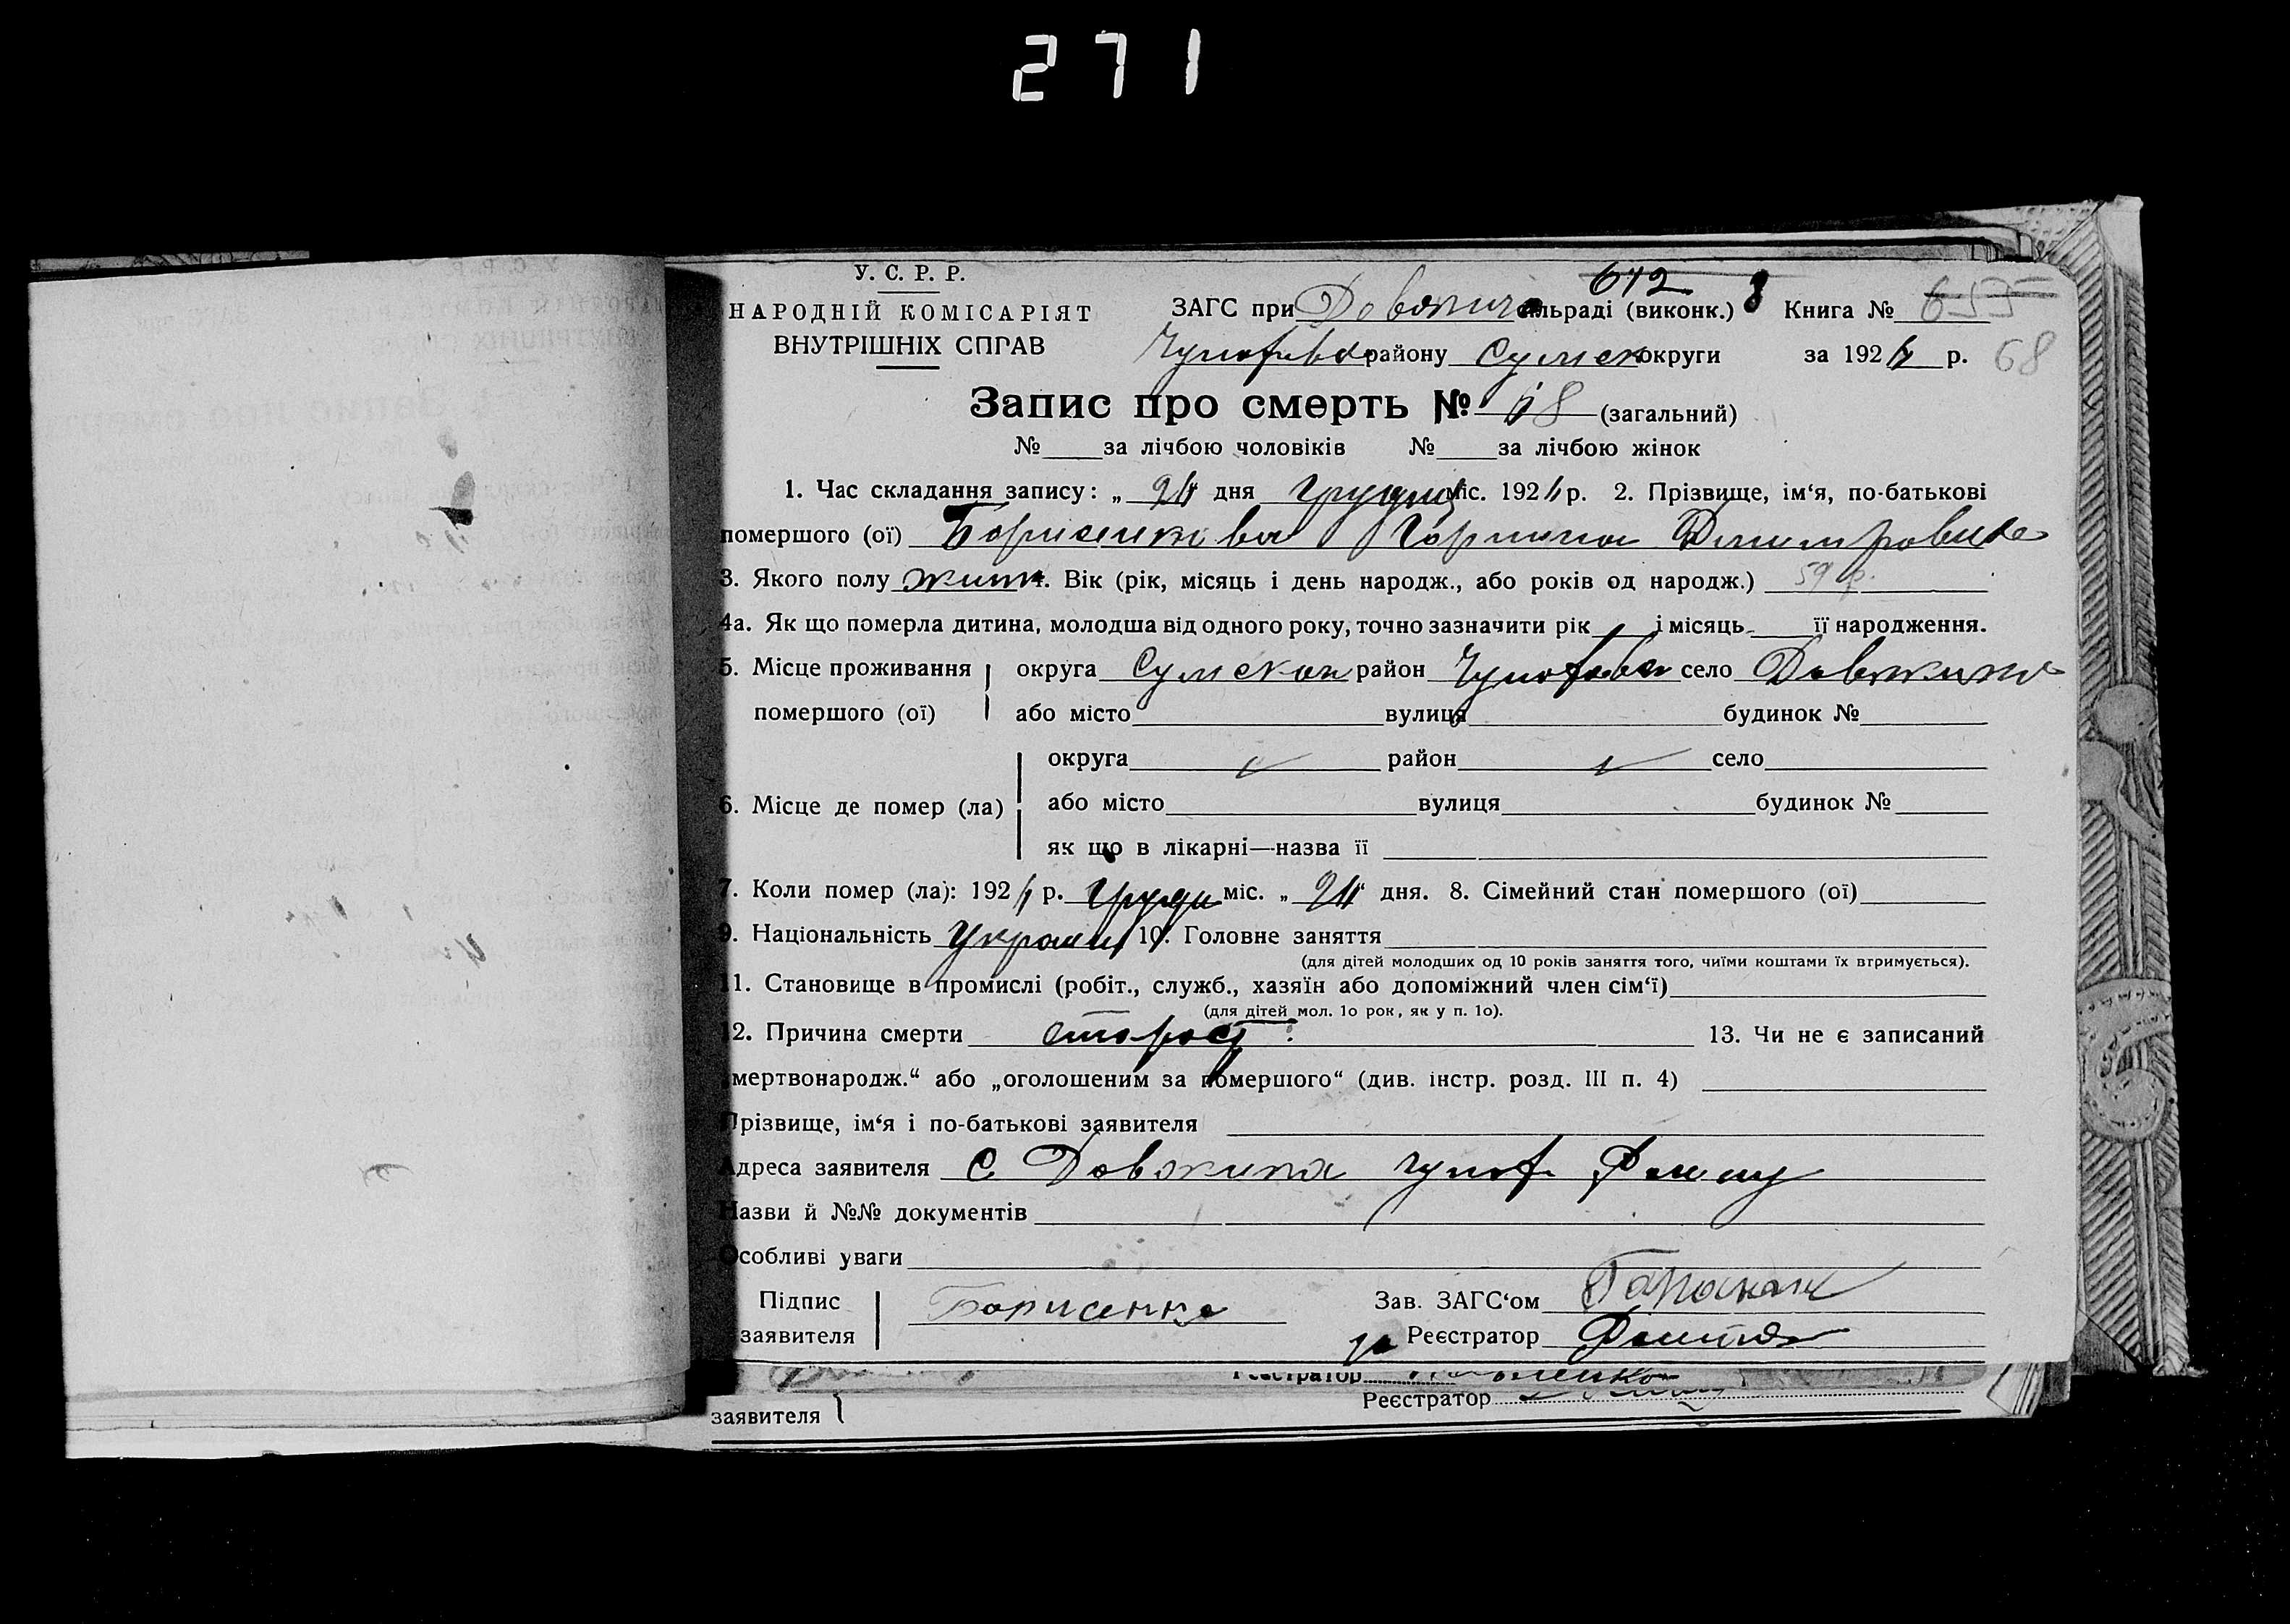 271
У. С. Р. Р.
НАРОДНІЙ КОМІСАРІЯТ
ВНУТРІШНІХ СПРАВ
612 8
ЗАГС при сільраді (виконк.) Книга № 655
району Сумск округи за 192 р. 68
Запис про смерть № 68 (загальний)
№ за лічбою чоловіків № за лічбою жінок
1. Час складання запису: „ 24 “ дня Грудня міс. 192 р. 2. Прізвище, ім‘я, по-батькові
помершого (ої) Борисенкова Горпина Дмитровна
3. Якого полу жіноч. Вік (рік, місяць і день народж., або років од народж.) 59 р.
4а. Як що померла дитина, молодша від одного року, точно зазначити рік і місяць її народження.
5. Місце проживання помершого (ої) округа Сумская район село
або місто вулиця будинок №
6. Місце де помер (ла) округа район село
або місто вулиця будинок №
як що в лікарні—назва її
7. Коли помер (ла): 192 р. Грудн міс. „ 24 “ дня. 8. Сімейний стан помершого (ої)
9. Національність Україн 10. Головне заняття
(для дітей молодших од 10 років заняття того, чиїми коштами їх втримується).
11. Становище в промислі (робіт., служб., хазяїн або допоміжний член сім‘ї)
(для дітей мол. 1о рок, як у п. 1о).
12. Причина смерти старост 13. Чи не є записаний
„мертвонародж.“ або „оголошеним за помершого“ (див. інстр. розд. III п. 4)
Прізвище, ім‘я і по-батькові заявителя
Адреса заявителя с Довжика
Назви й №№ документів
Особливі уваги
Підпис заявителя Борисенко
Зав. ЗАГС‘ом
за Реєстратор
Реєстратор
Реєстратор
заявителя